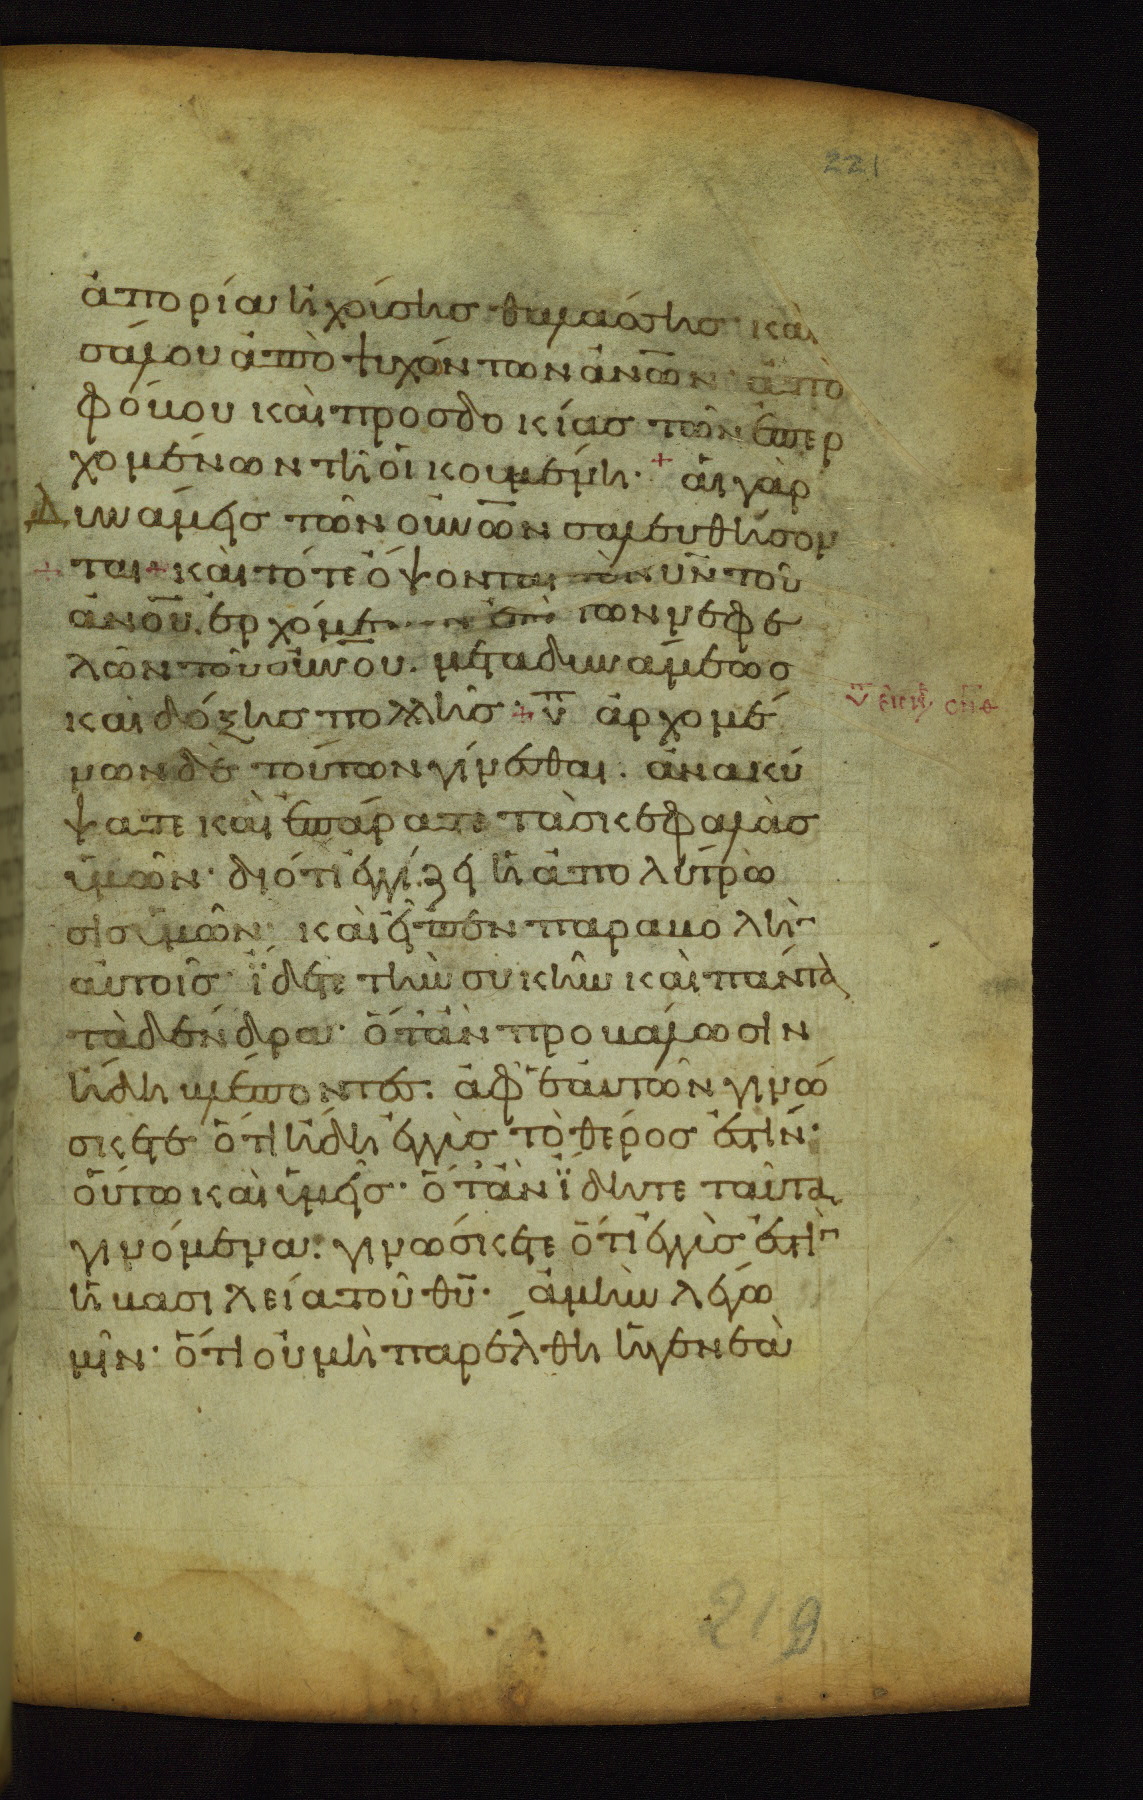 221
ἀπορία ἠχούσης θαλάσσης καὶ
σάλου ἀπὸ ψυχόντων ἀνῶν ἀπὸ
φόβου καὶ προσδοκίας τῶν ἐπερ
χομένων τῆ οἰκουμένη· + αἱ γὰρ
Δυνάμεις τῶν οὐνῶν σαλευθήσον
ται + καὶ τότε ὄψονται τὸν υν τοῦ
ἀνου. ἐρχόμε ἐπὶ τῶν νεφε
λῶν τοῦ οὐνου. μετὰ δυνάμεως
καὶ δόξης πολλῆς + ἀρχομέ
νων δὲ τούτων γίνεσθαι. ἀνακύ
ψατε καὶ ἐπάρατε τὰς κεφαλὰς
ὑμῶν· διότι ἐγγίζει ἡ ἀπολύτρω
σις ὑμῶν· καὶ εἶπεν παραβολὴν
αὐτοῖς· ἴδετε τὴν συκῆν καὶ πάντα
τὰ δένδρα· ὅταν προβάλωσιν
ἤδη βλέποντες. ἀφ ἑαυτῶν γινώ
σκετε ὅτι ἤδη ἐγγὺς τὸ θέρος ἐστίν·
οὕτω καὶ ὑμεῖς· ὅταν ἴδητε ταῦτα
γινόμενα. γινώσκετε ὅτι ἐγγύς ἐστὶν
ἡ βασιλεία τοῦ θυ· ἀμὴν λέγω
μῖν· ὅτι οὐ μὴ παρέλθη ἡ γενεὰ
219